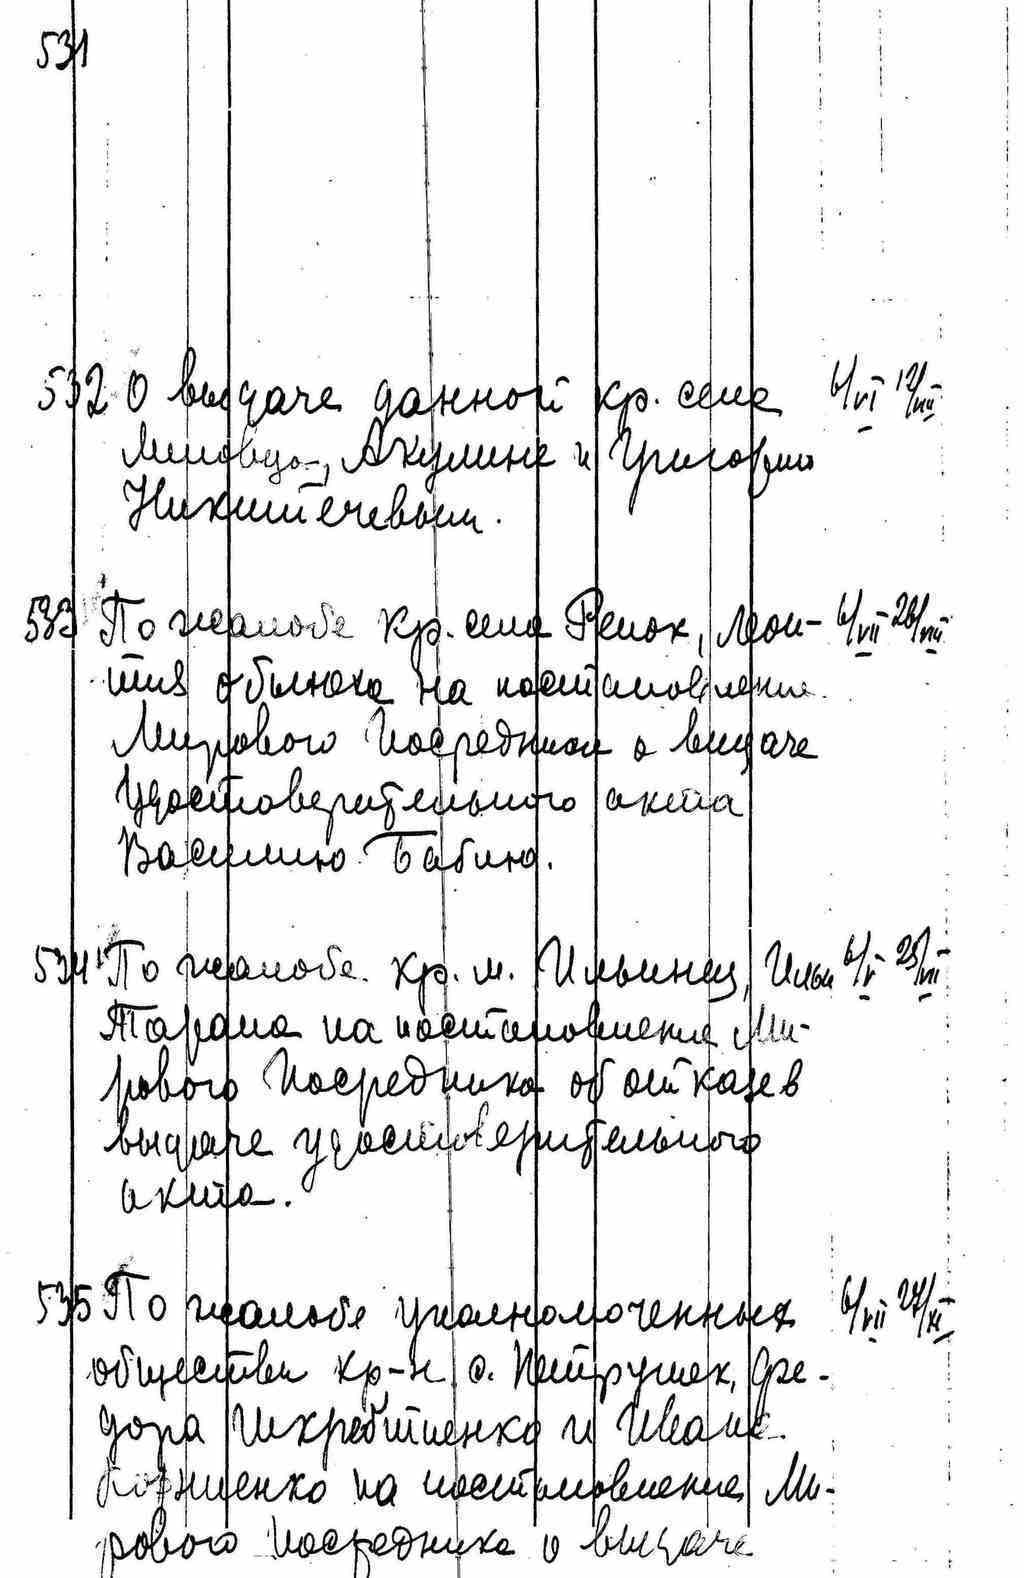 531
532 О выдаче данной кр. села 6/VI 12/VIII
Акулине и Григорию
Никитчевым.
533 По жалобе кр. села Репок, Леон- 6/VII 26/VIII
тия на постановление
Мирового Посредника о выдаче
Удостоверительного акта
Василию Бабию.
534 По жалобе кр. м. Ильинец, Ильи 6/V 25/VII
Тарана на постановление Ми-
рового Посредника об отказе в
выдаче удостоверительного
акта.
535 По жалобе уполномоченных 6/VII 27/XI
общества кр-н с. Петрушек, Фе-
дора Шкребтиенко и Ивана
Корниенко на постановление Ми-
рового Посредника о выдаче